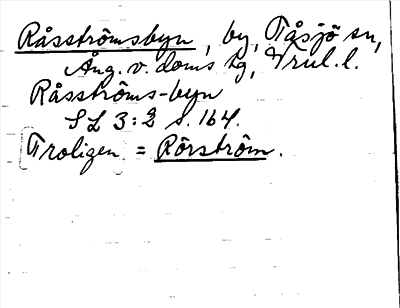 Råsströmsbyn, by, Tåsjö sn,
Ång. v. doms sg, Vrul. l.
Råsströms-byn
SL 3:2 s. 164.
[Troligen = Rörström.